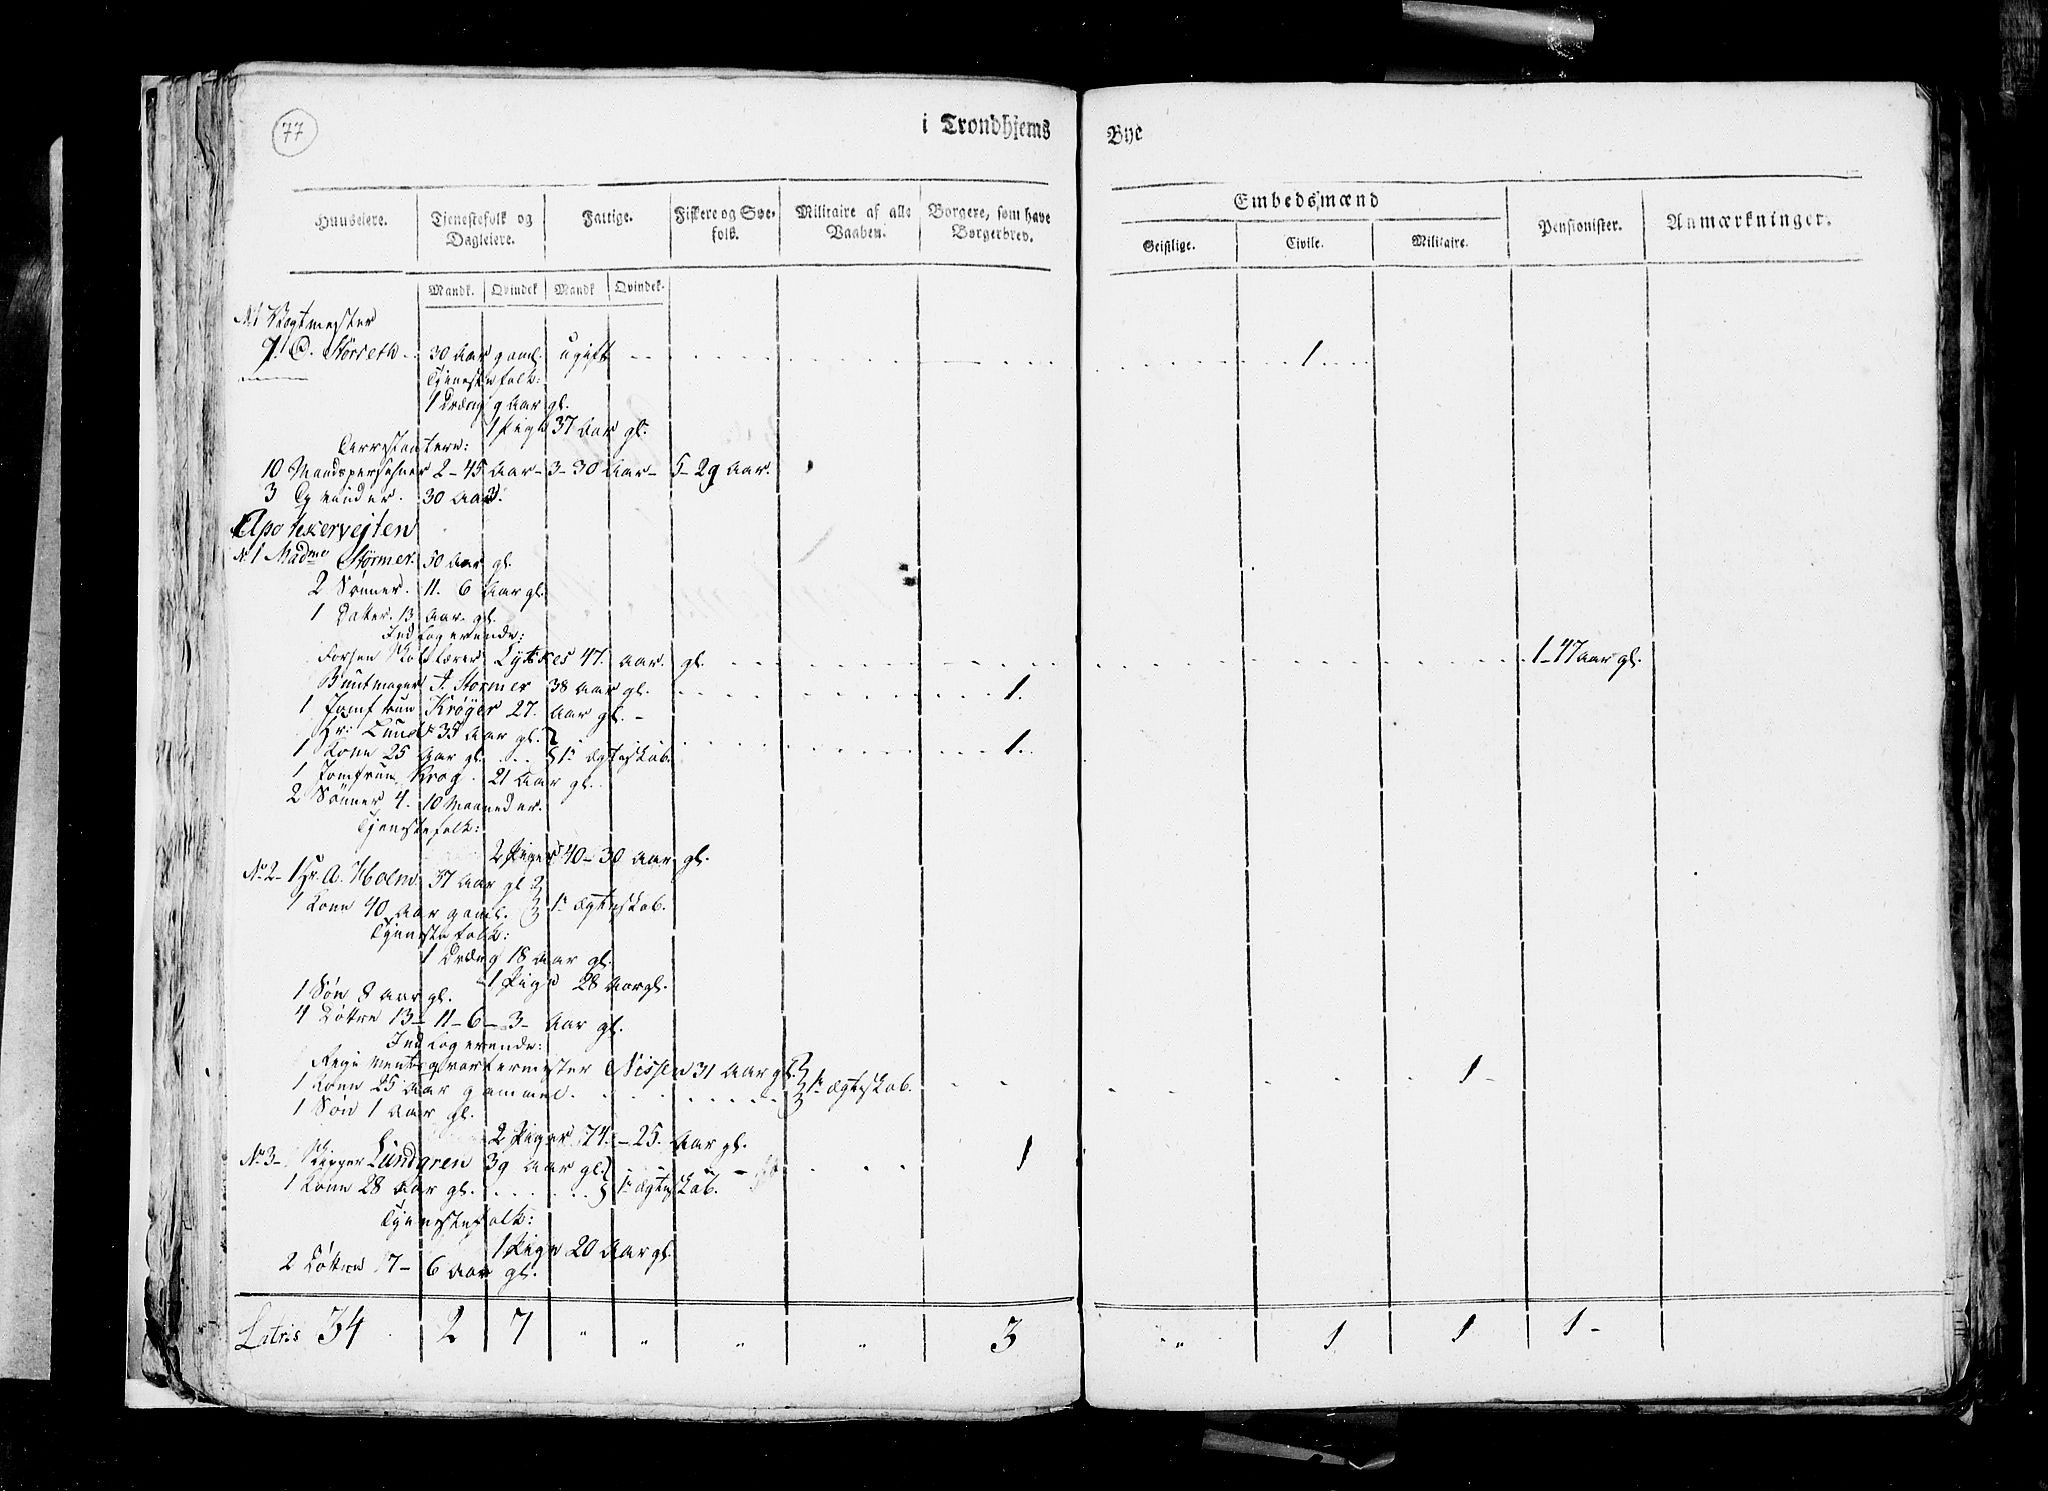 77
i Trondhjems Bye
Huuseiere. Tjenestefolk og Dagleiere. Fattige. Fiskere og Søefolk. Militaire af alle Vaaben. Borgere, som have Borgerbrev. Embedsmænd Pensionister. Anmærkninger.
Geistlige. Civile. Militaire.
Mandk. Qvindek Mandk Qvindek.
No 1 Vagtmester
Störseth 30 Aar gaml. ugift 1
Tjenestefolk:
1 Dræng 9 Aar gl.
1 Pige 37 Aar gl.
Arrestantere:
10 Mandspersohner 2-45 Aar- 3-30 Aar- 5-29 Aar.
3 Qvinder. 30 Aar.
Apothekerveiten
No 1 Madme Størmer. 50 Aar gl.
2 Sønner. 11. 6 Aar gl.
1 Datter. 13 Aar. gl.
Indlogerende:
Lytkes 47. Aar. gl. 1-47 aar gl.
Buntmager J. Stormer 38 Aar gl. 1.
1 Jomfrue Krøyer 27. Aar gl. -
Hr: Lund 35 Aar gl. 
1 Kone 25 Aar gl. 1te Ægteskab. 1.
1 Jomfrue Krog. 21 Aar gl.
2 Sönner 4. 10 Maaneder.
Tjenestefolk:
2 Piger 40-30 Aar gl.
No 2- 1 Hr. A. Holm. 37 Aar gl
1 Kone 40 Aar gaml. 1te Ægteskab.
Tjenestefolk:
1 Dræng 18 Aar gl.
1 Pige 28 Aar gl.
1 Sön 8 Aar gl.
4 Döttre 13-11-6-3- Aar gl.
Indlogerende:
Regimentsqvarteermester Nissen 31 Aar gl. 1-
1 Kone 25 Aar gammel. 1te Ægteskab.
1 Sön 1 Aar gl.
2 Piger 74.-25. Aar gl.
No 3- Skipper Lundgren 39 Aar gl. 1
1 Kone 28 Aar gl. 1te Ægteskab.
Tjenestefolk:
1 Pige 20 Aar gl.
2 Döttre 7- 6 Aar gl.
Latris 34 2 7 " " " " 3 " 1 1 1-